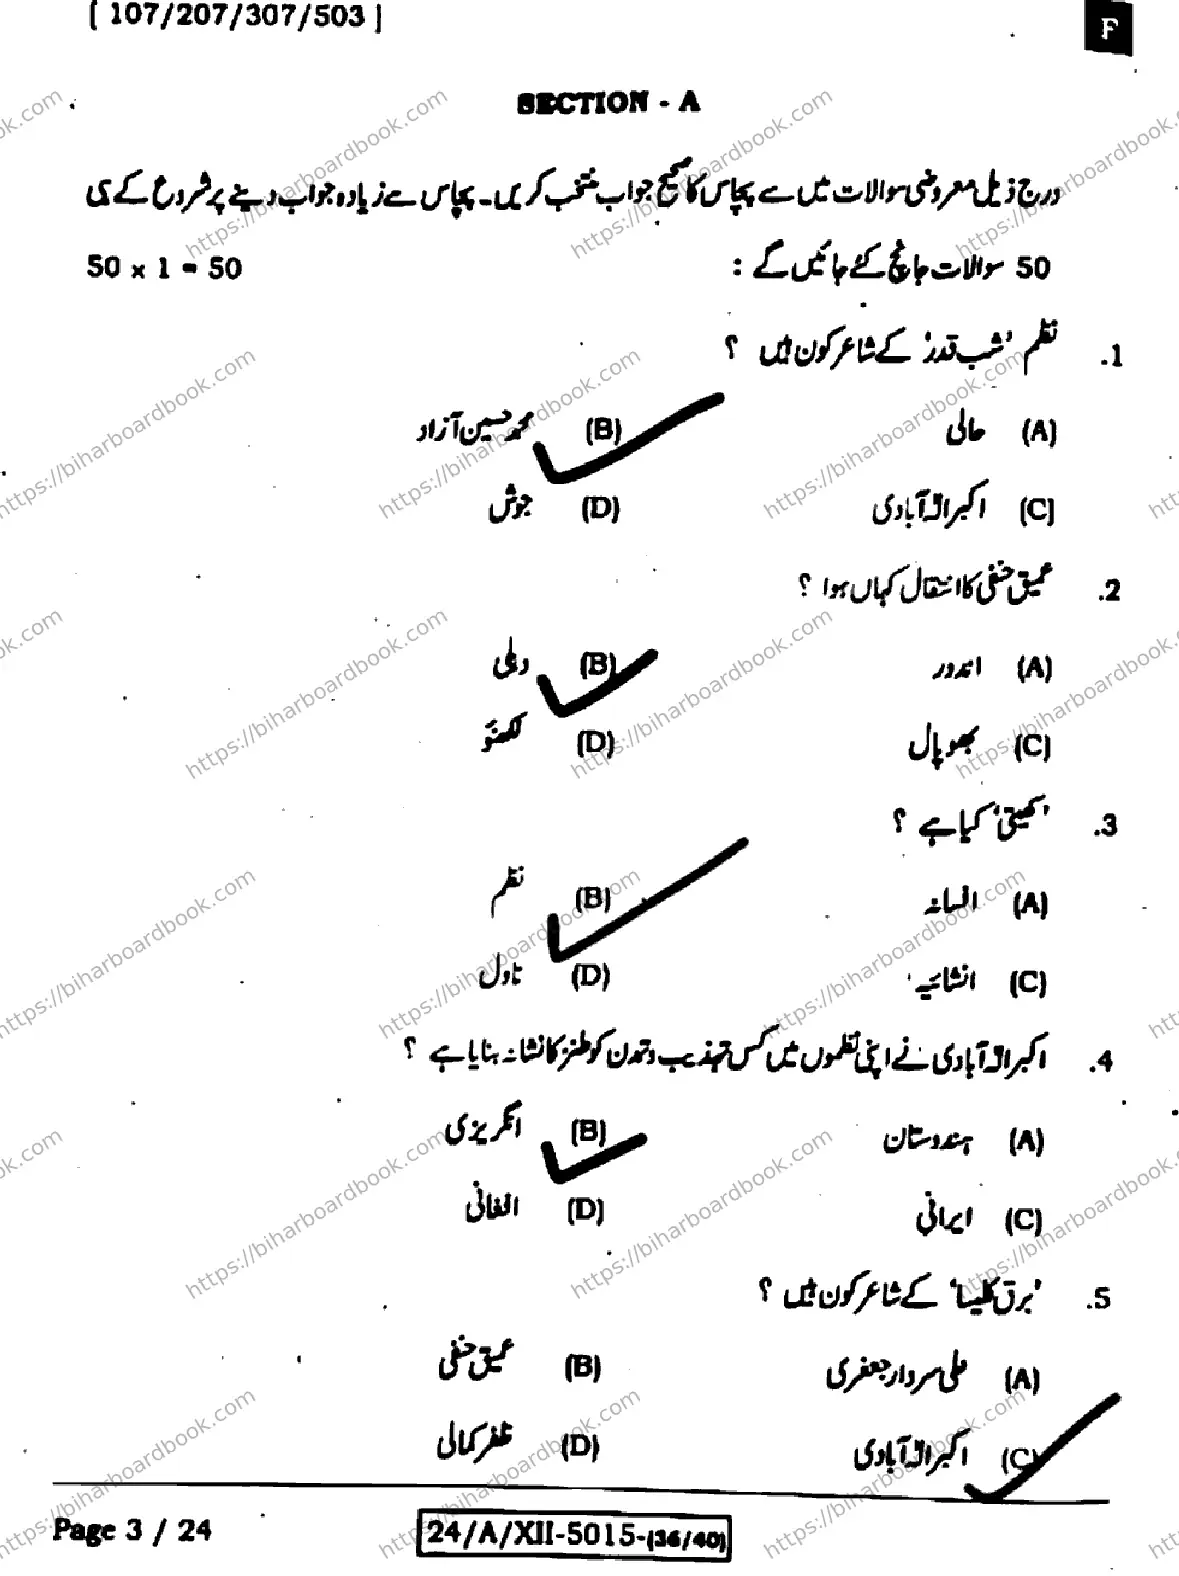 [ 107/207/307/503 ]
F
SECTION - A
درج ذیل معروضی سوالات میں سے پچاس کا صحیح جواب منتخب کریں۔ پچاس سے زیادہ جواب دینے پر شروع کے ہی
50 سوالات جانچ کئے جائیں گے : 50 x 1 = 50
1. نظم 'شب قدر' کے شاعر کون ہیں ؟
(A) حالی (B) محمد حسین آزاد
(C) اکبر الہ آبادی (D) جوش
2. عمیق حنفی کا انتقال کہاں ہوا ؟
(A) اندور (B) دہلی
(C) بھوپال (D) لکھنؤ
3. 'کھیتی' کیا ہے ؟
(A) افسانہ (B) نظم
(C) انشائیہ (D) ناول
4. اکبر الہ آبادی نے اپنی نظموں میں کس تہذیب و تمدن کو طنز کا نشانہ بنایا ہے ؟
(A) ہندوستان (B) انگریزی
(C) ایرانی (D) افغانی
5. 'برق کلیسا' کے شاعر کون ہیں ؟
(A) علی سردار جعفری (B) عمیق حنفی
(C) اکبر الہ آبادی (D) ظفر کمالی
Page 3 / 24
24/A/XII-5015-(36/40)
https://biharboardbook.com